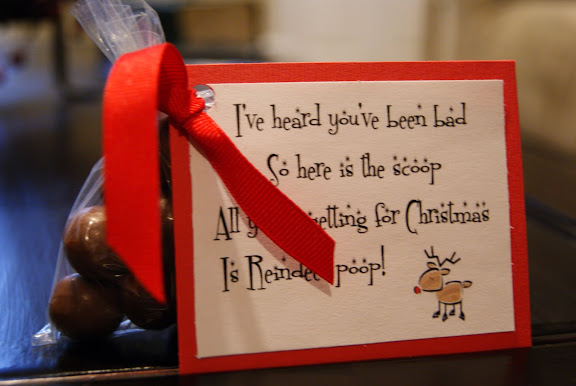 I've heard you've been bad
So here is the scoop
All getting for Christmas
Is Reindeer poop!